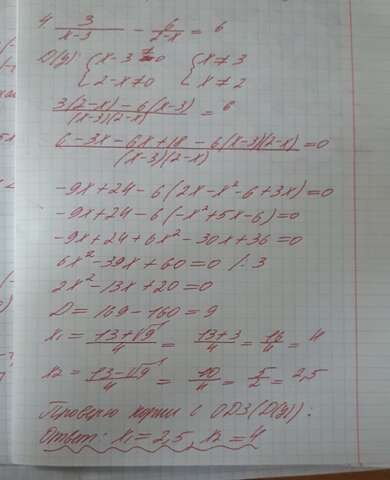 4. 3/(x-3) - 6/(2-x) = 6
D(y): { x-3≠0 { x≠3
{ 2-x≠0 { x≠2
(3(2-x)-6(x-3))/((x-3)(2-x)) = 6
(6-3x-6x+18-6(x-3)(2-x))/((x-3)(2-x)) = 0
-9x+24-6(2x-x²-6+3x)=0
-9x+24-6(-x²+5x-6)=0
-9x+24+6x²-30x+36=0
6x²-39x+60=0 /:3
2x²-13x+20=0
D=169-160=9
x1 = (13+√9)/4 = (13+3)/4 = 16/4 = 4
x2 = (13-√9)/4 = 10/4 = 5/2 = 2,5
Проверю корни с ОДЗ(D(y)):
Ответ: x1=2,5, x2=4